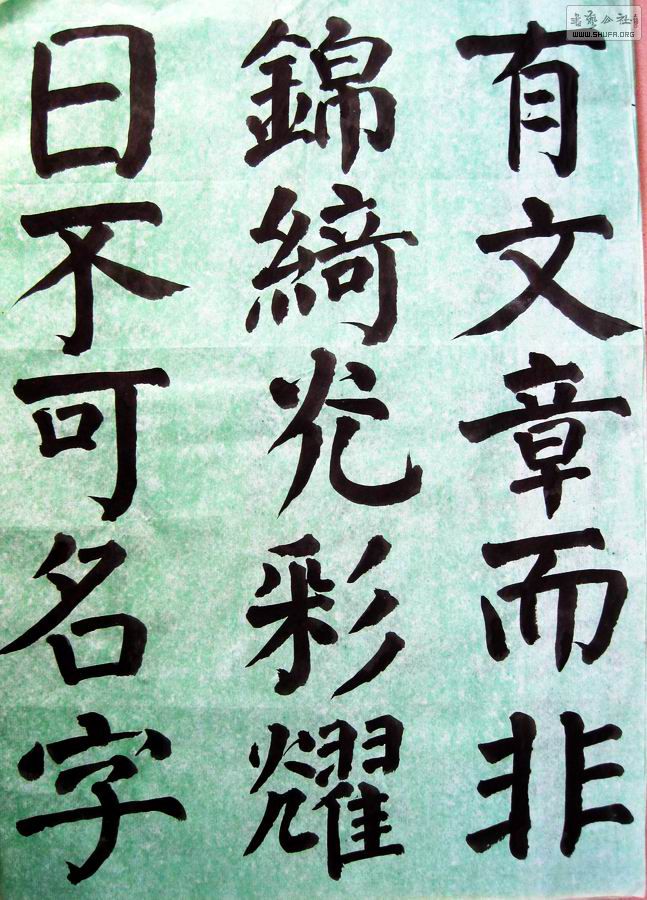 有文章而非
錦綺光彩耀
日不可名字
書藝公社
WWW.SHUFA.ORG